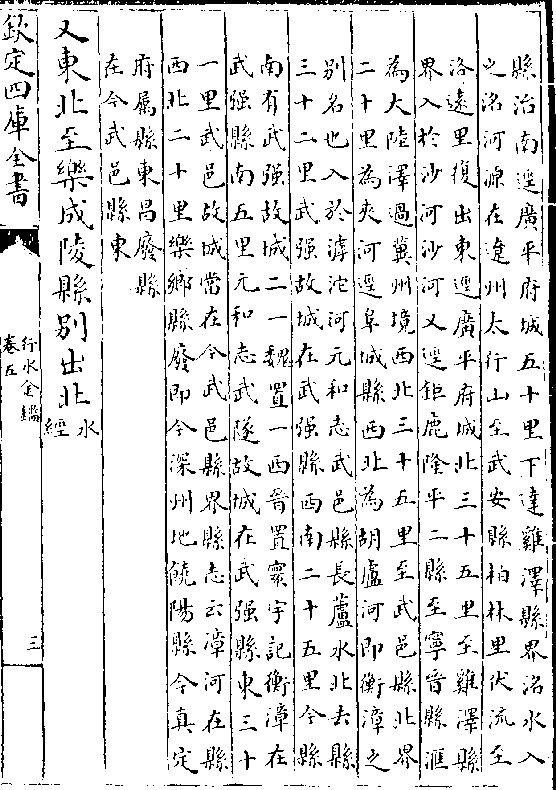 縣治南逕廣平府城五十里下達雞澤縣界洺水入
之洺河源在遼州太行山至武安縣柏林里伏流至
洛遠里復出東逕廣平府城北三十五里至雞澤縣
界入於沙河沙河又逕鉅鹿隆平二縣至寧晉縣滙
為大陸澤過冀州境西北三十五里至武邑縣北界
二十里為夾河逕阜城縣西北為胡盧河即衡漳之
別名也入於滹沱河元和志武邑縣長蘆水北去縣
三十二里武强故城在武强縣西南二十五里今縣
南有武强故城二一魏置一西晉置寰宇記衡漳在
武强縣南五里元和志武隧故城在武强縣東三十
一里武邑故城當在今武邑縣界縣志云漳河在縣
西北二十里樂鄉縣廢即今深州地饒陽縣今真定
府屬縣東昌廢縣
在今武邑縣東
又東北至樂成陵縣別出北水經
欽定四庫全書
行水金鑑
卷五
三